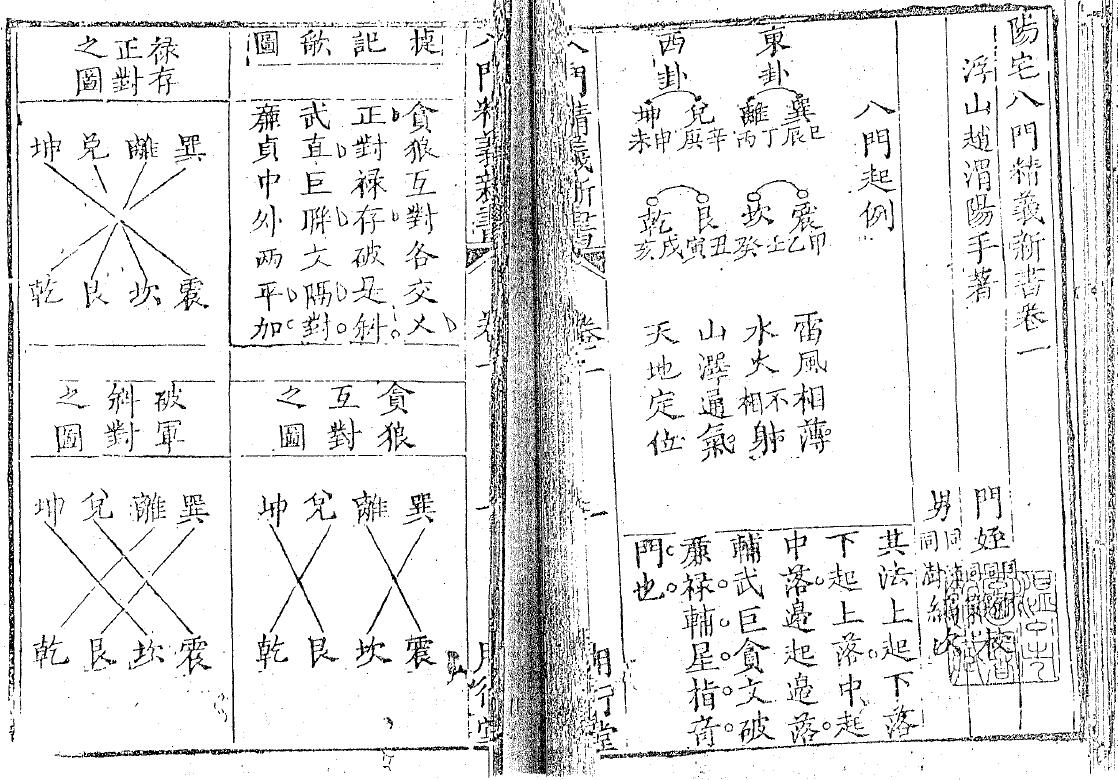 陽宅八門精義新書卷一
浮山趙渭陽手著
門姪
男
編次
八門起例
東卦
西卦
巽離兌坤
巳辰丁丙辛庚申未
震坎艮乾
甲乙壬癸丑寅戌亥
雷風相薄
水火不相射
山澤通氣
天地定位
其法上起下落
下起上落中起
中落邉起邉落
輔武巨貪文破
廉禄輔星指音
門也
八門精義新書
卷一
一
捷記歌圖
貪狼互對各交乂
正對禄存破是斜
武直巨聯文隅對
廉貞中外兩平加
禄存
正對
之圖
巽離兌坤
震坎艮乾
貪狼
互對
之圖
巽離兌坤
震坎艮乾
破軍
斜對
之圖
巽離兌坤
震坎艮乾